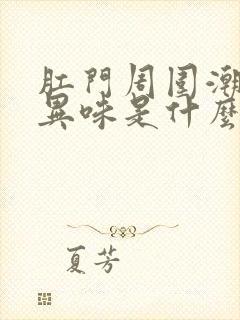 肛門周圍潮
異味是什麼
夏芳